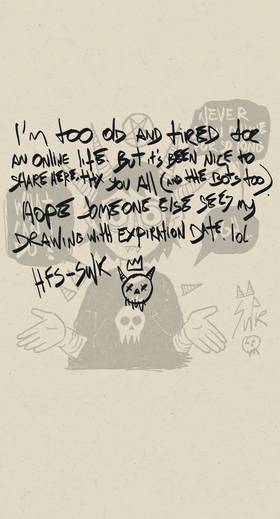 I'm too old and tired for
an online life. But it's been nice to
share here. thx you all (and the bots too).
Hope someone else sees my
drawing with expiration date. lol
HFS-SWK
NEVER